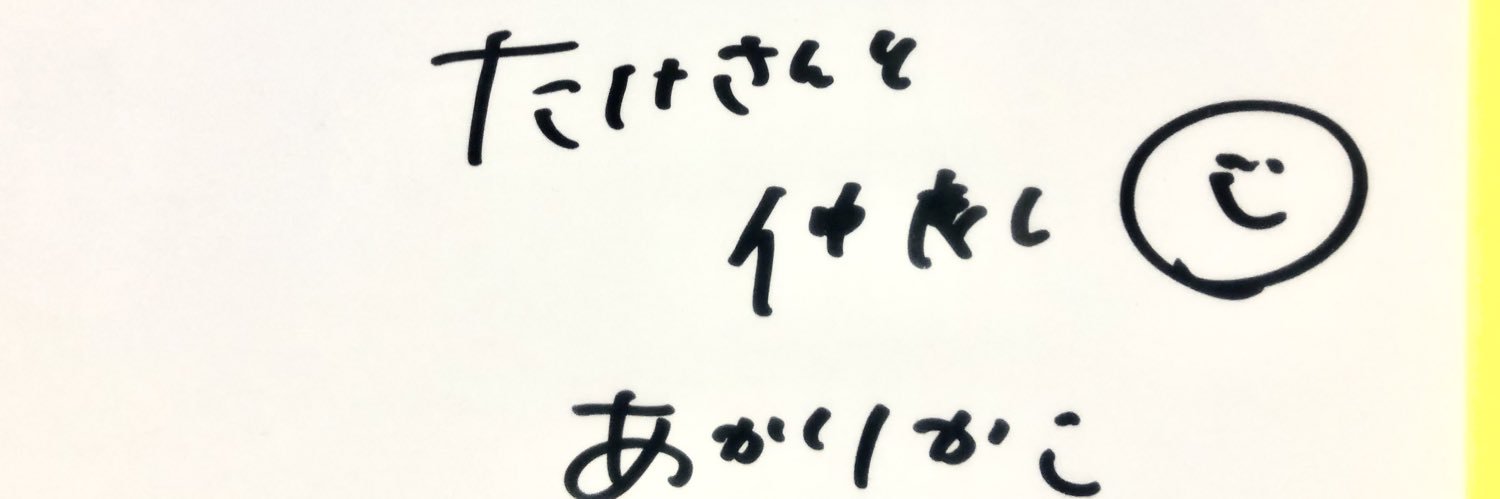 たけさんと
仲良し
あかりかこ